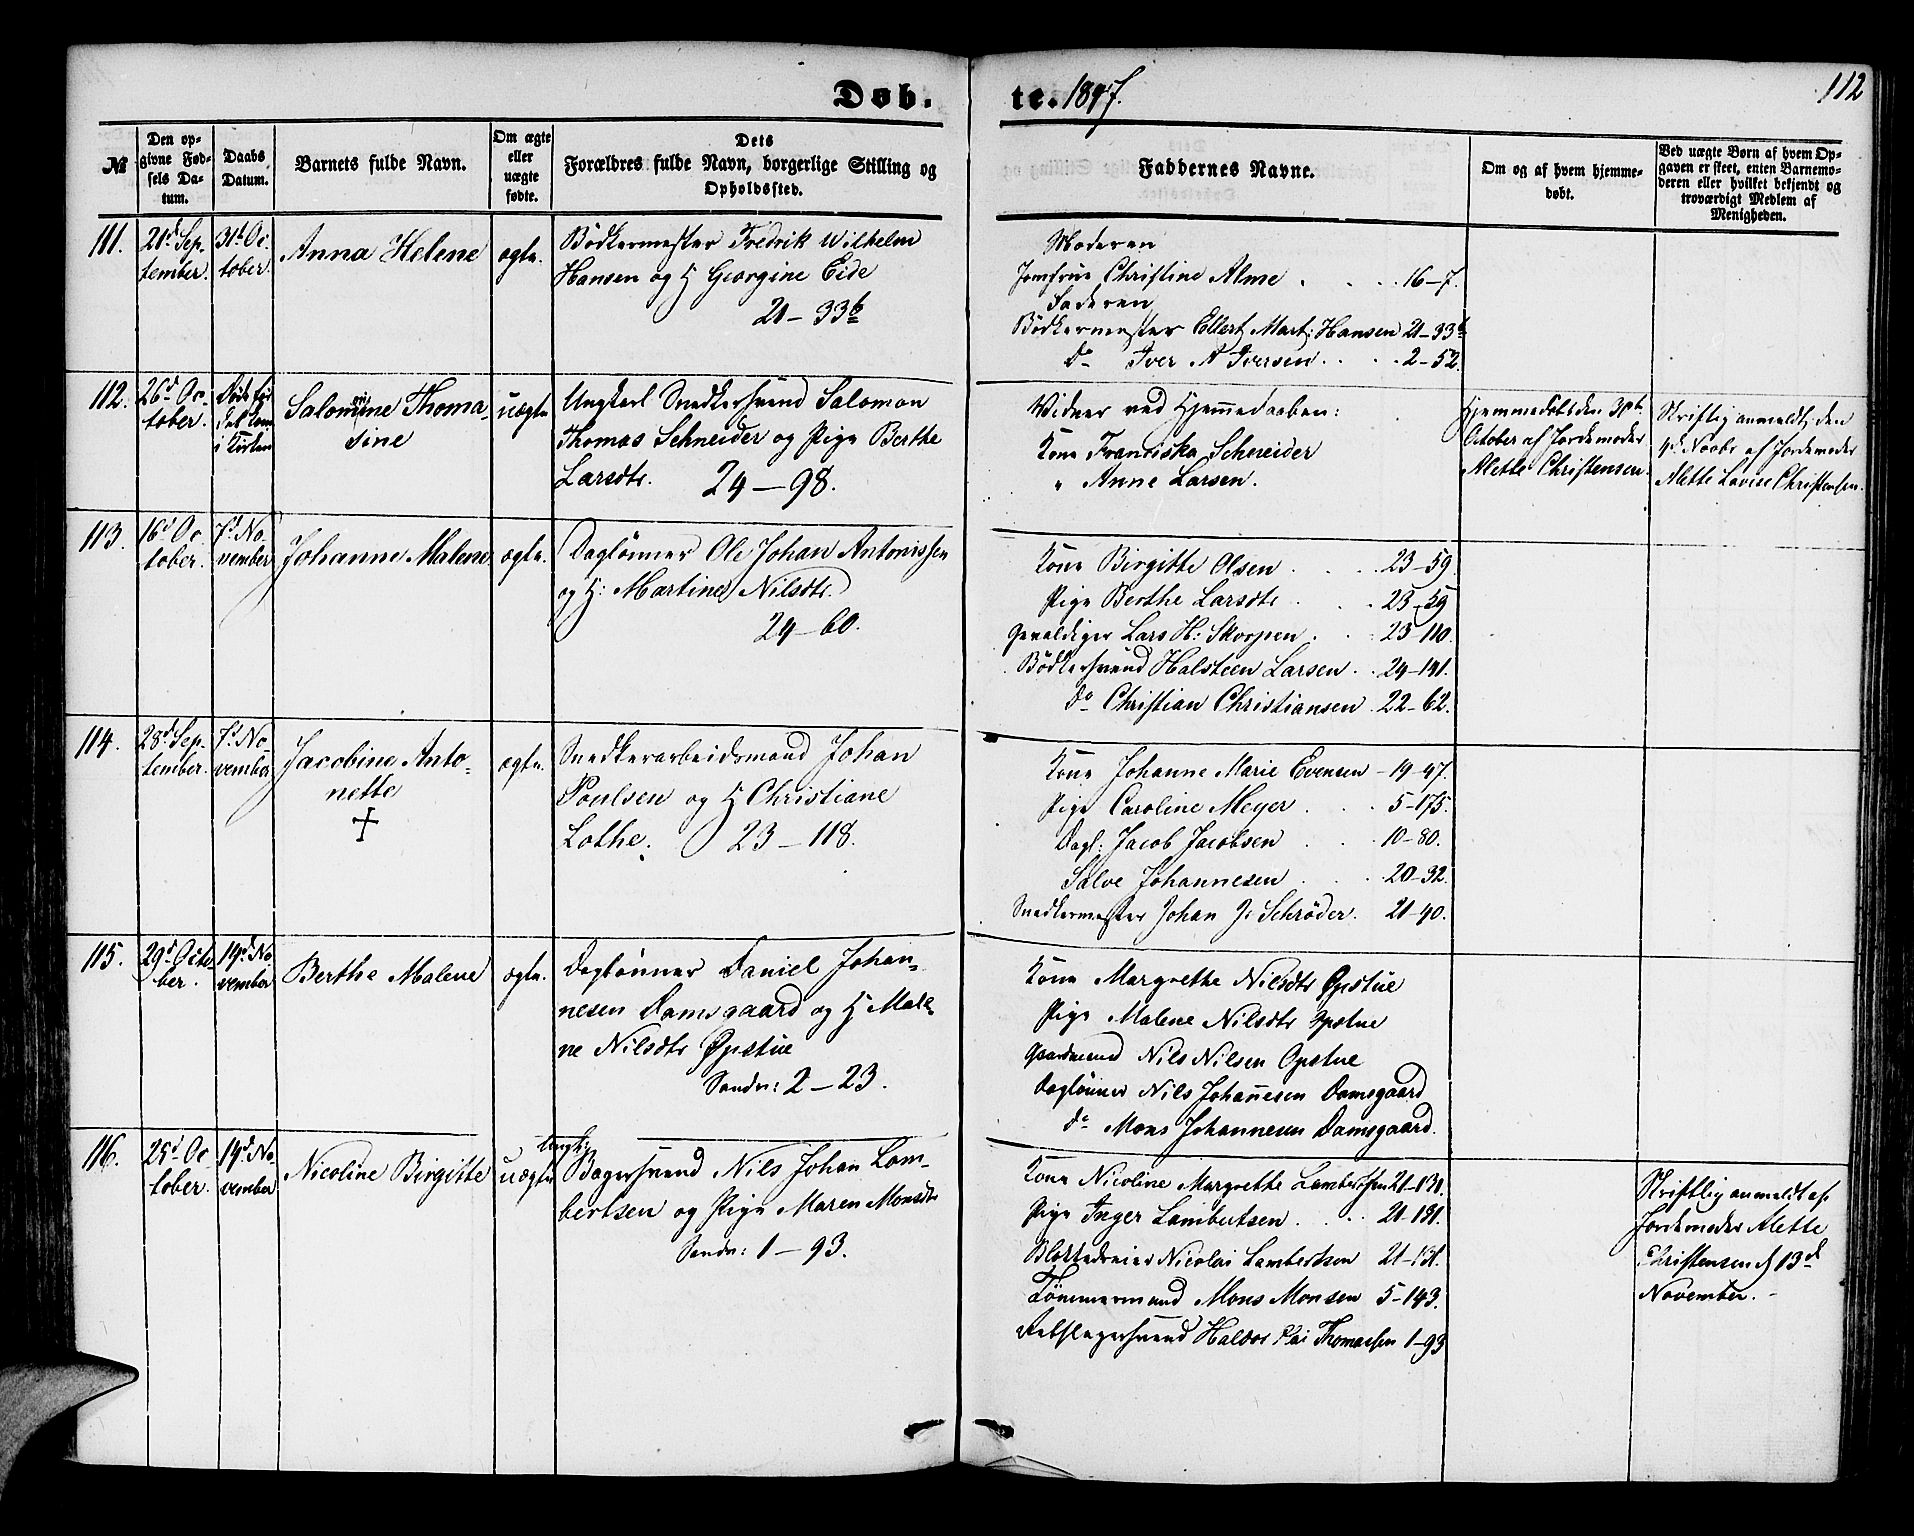 Døb.
te. 1847.
112
№
Den op-
givne Fød-
sels Da-
tum.
Daabs
Datum.
Barnets fulde Navn.
Om ægte
eller
uægte
fødte.
Dets
Forældres fulde Navn, borgerlige Stilling og
Opholdssted.
Faddernes Navne.
Om og af hvem hjemme-
døbt.
Ved uægte Børn af hvem Op-
gaven er skeet, enten Barnemo-
deren eller hvilket bekjendt og
troværdigt Medlem af
Menigheden.
111.
21d Sep-
tember.
31te Oc-
tober.
Anna Helene
ægte.
Bödkermester Fredrik Wilhelm
Hansen og H Georgine Eide
21-33b
Moderen
Jomfrue Christine Alme . . . . 16-7.
Faderen
Bödkermester Ellert Mart: Hansen 21-33b
Do Iver A Iversen . . . 2-52.
112.
26d Oc-
tober.
Døde før
det kom
i Kirken
Salomine Thoma-
sine
uægte
Ungkarl Snedkersvend Salomon
Thomas Schneider og Pige Berthe
Larsdtr. 24-98.
Vidner ved Hjemmedaaben:
Kone Franciska Schneider
" Anne Larsen.
Hjemmedöbt den 30te
October af Jordemoder
Alette Christensen.
Skriftlig anmeldt den
4d Novbr af Jordemoder
Alette Lovise Christensen.
113.
16d Oc-
tober.
7d No-
vember
Johanne Malene
ægte.
Daglönner Ole Johan Antonissen
og H: Martine Nilsdtr.
24-60.
Kone Birgitte Olsen . . . . 23-59.
Pige Berthe Larsdtr . . . 23-59
Gevaldiger Lars H: Skorpen . . 23-110.
Bödkersvend Halsteen Larsen . . 24-141.
Do Christian Christiansen . 22-62.
114.
28d Sep-
tember.
7d No-
vember
Jacobine Anto-
nette
+
ægte.
Snedkerarbeidsmand Johan
Poulsen og H Christiane
Lothe. 23-118.
Kone Johanne Marie Evensen - 19-47.
Pige Caroline Meyer . . . 5-175.
Dagl: Jacob Jacobsen . . 10-80.
Salve Johannesen . . . 20-32.
Snedkermester Johan J: Schröder. 21-40.
115.
29d Octo-
ber.
14d No-
vember
Berthe Malene
ægte.
Daglönner Daniel Johan-
nesen Damsgaard og H Male-
ne Nilsdtr Opstue
Sandv: 2-23.
Kone Margrethe Nilsdtr Opstue
Pige Malene Nilsdtr Opstue
Gaardmand Nils Nilsen Opstue
Daglönner Nils Johanesen Damsgaard
do Mons Johannesen Damsgaard.
116.
25d Oc-
tober.
14d No-
vember
Nicoline Birgitte
uægte
Bagersvend Nils Johan Lam-
bertsen og Pige Maren Monsdtr
Sandv: 1-93.
Kone Nicoline Margrethe Lambertsen 21-131.
Pige Inger Lambertsen . . . 21-131.
Blokkedreier Nicolai Lambertsen 21-131.
Tömmermand Mons Monsen 5-143.
Rebslagersvend Haldor Thomassen 1-93
Skriftlig anmeldt af
Jordemoder Alette
Christensen d 13d
November. -